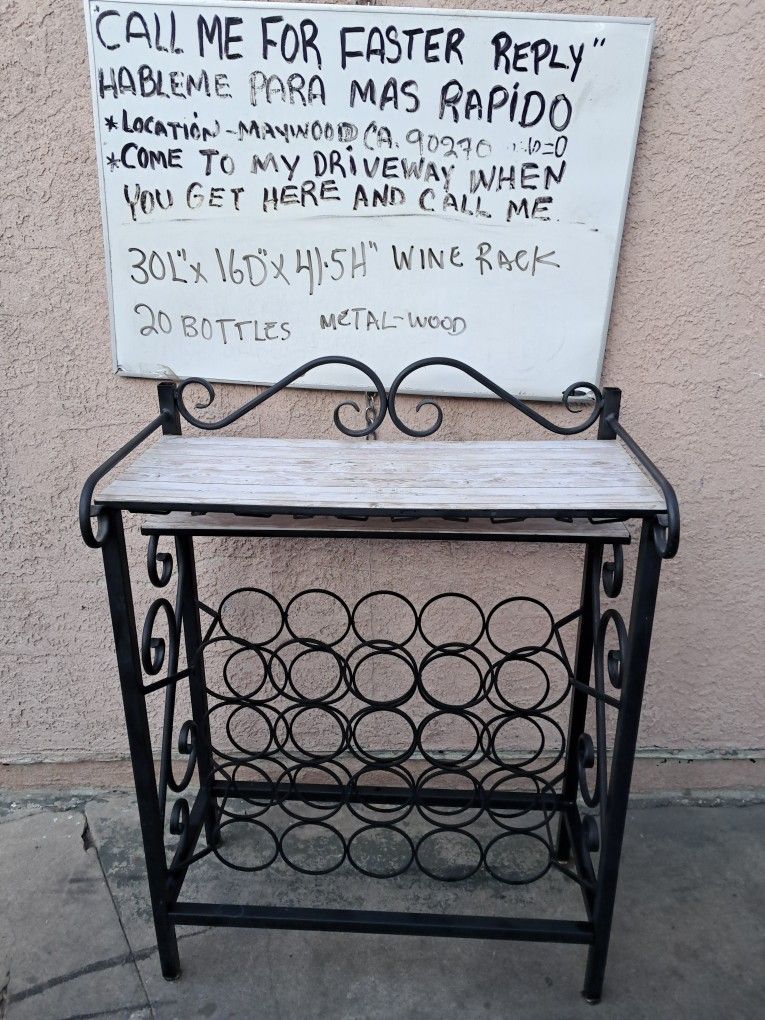 "CALL ME FOR FASTER REPLY"
HABLEME PARA MAS RAPIDO
*LOCATION-MAYWOOD CA. 90270
*COME TO MY DRIVEWAY WHEN
YOU GET HERE AND CALL ME
30L"x 16D"x 41.5H" WINE RACK
20 BOTTLES METAL-WOOD